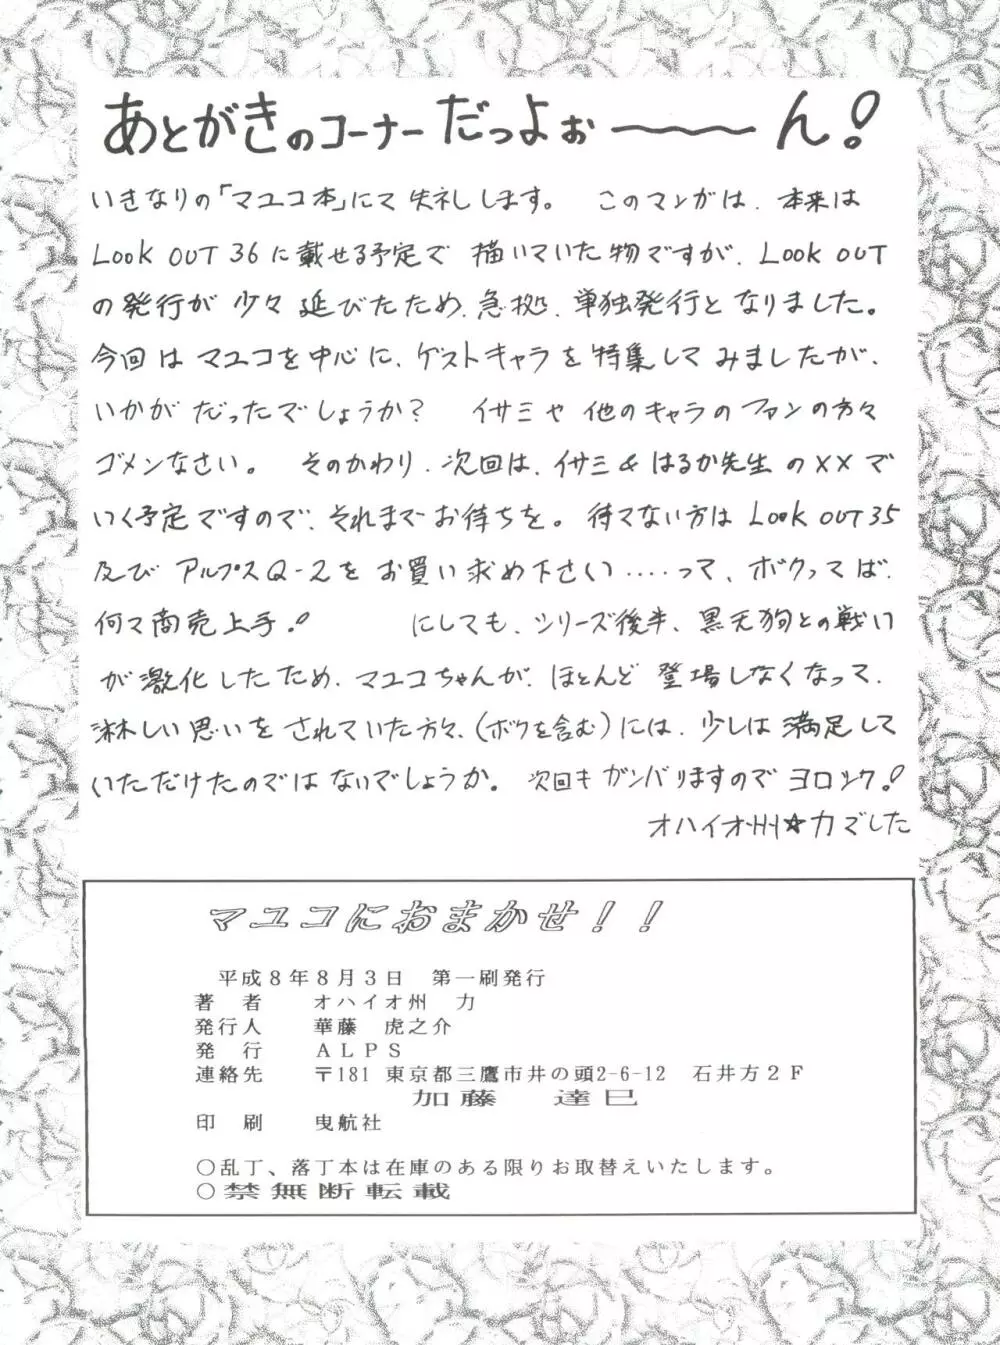 あとがきのコーナーだっよぉ〜〜〜ん!
いきなりの「マユコ本」にて失礼します。 このマンガは、本来は
Look OUT 36に載せる予定で描いていた物ですが、Look OUT
の発行が少々延びたため、急拠、単独発行となりました。
今回はマユコを中心に、ゲストキャラを特集してみましたが、
いかがだったでしょうか? イサミや他のキャラのファンの方々
ゴメンなさい。 そのかわり、次回は、イサミ&はるか先生の××で
いく予定ですので、それまでお待ちを。待てない方はLook OUT 35
及びアルプスQ-2をお買い求め下さい‥‥って、ボクってば、
何て商売上手! にしても、シリーズ後半、黒天狗との戦い
が激化したため、マユコちゃんが、ほとんど登場しなくなって、
淋しい思いをされていた方々、(ボクを含む)には、少しは満足して
いただけたのではないでしょうか。 次回もガンバりますのでヨロシク!
オハイオ州☆力でした
マユコにおまかせ!!
平成8年8月3日 第一刷発行
著者 オハイオ州 力
発行人 華藤 虎之介
発行 ALPS
連絡先 〒181 東京都三鷹市井の頭2-6-12 石井方2F
加藤 達巳
印刷 曳航社
○乱丁、落丁本は在庫のある限りお取替えいたします。
○禁無断転載